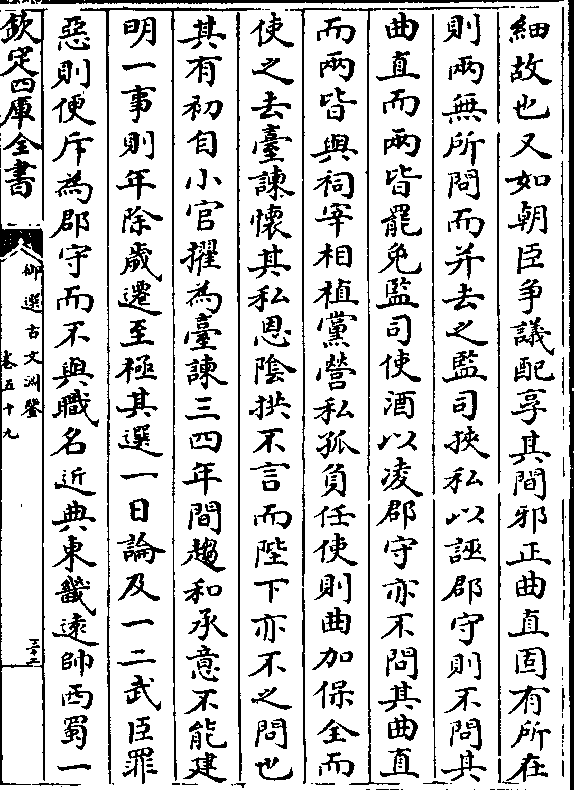 細故也又如朝臣爭議配享其間邪正曲直固有所在
則兩無所問而并去之監司挾私以誣郡守則不問其
曲直而兩皆罷免監司使酒以凌郡守亦不問其曲直
而兩皆與祠宰相植黨營私孤負任使則曲加保全而
使之去臺諫懷其私恩陰拱不言而陛下亦不之問也
其有初自小官擢為臺諫三四年間趨和承意不能建
明一事則年除歲遷至極其選一日論及一二武臣罪
惡則便斥為郡守而不與職名近典東畿遠帥西蜀一
欽定四庫全書
御選古文淵鑒
卷五十九